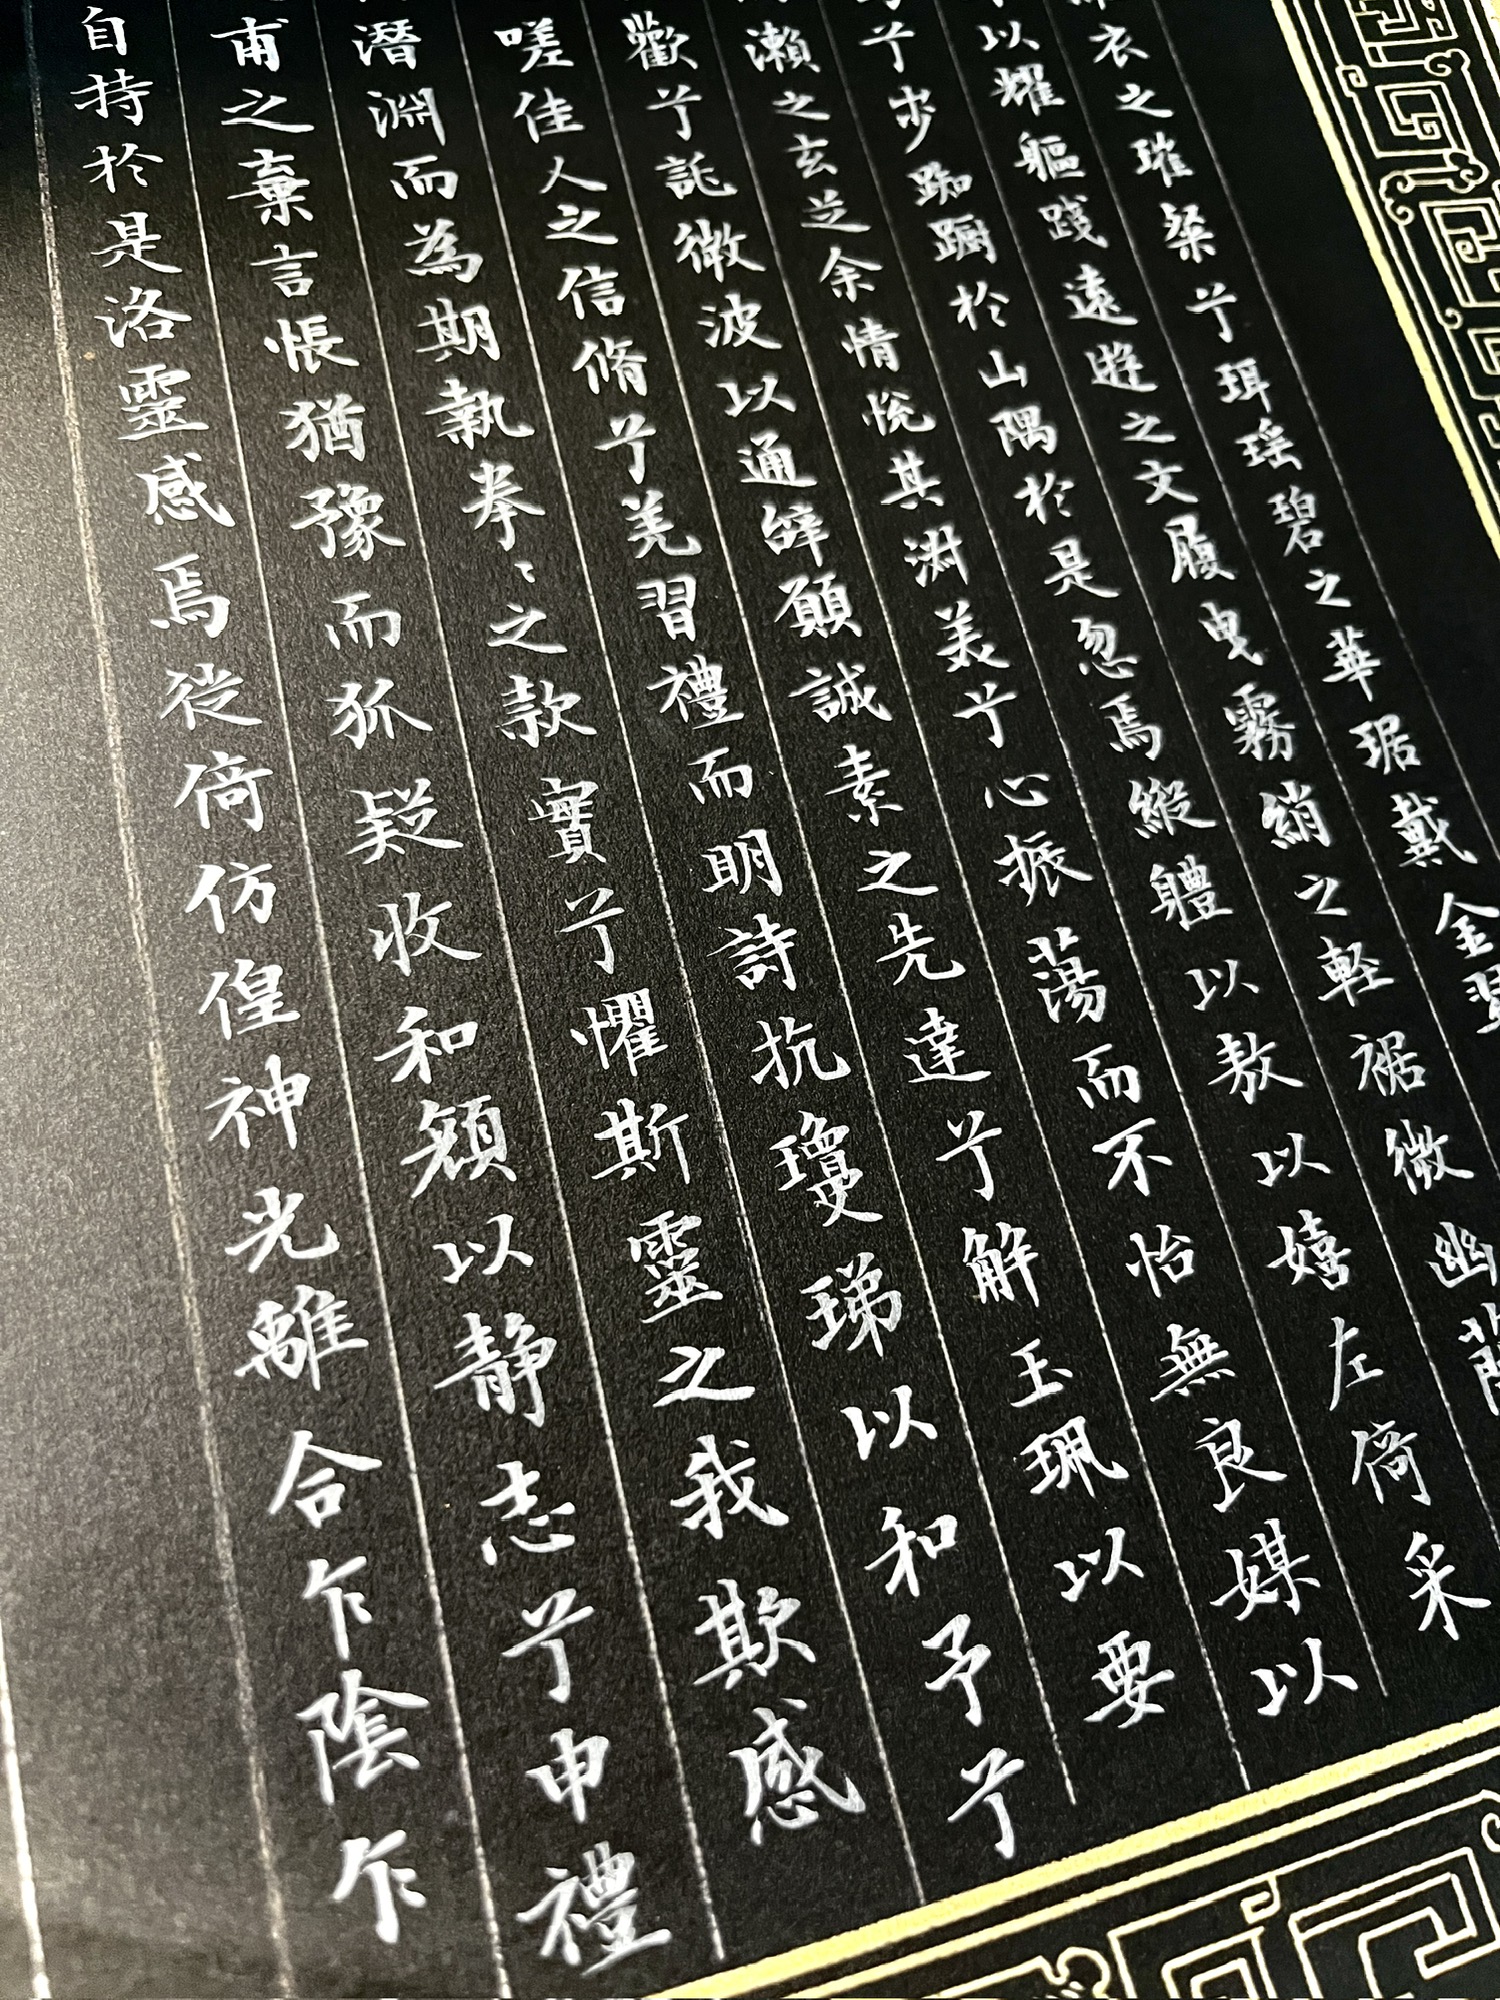 衣之璀粲兮珥瑶碧之華琚戴金翠
以耀軀踐遠遊之文履曳霧綃之軽裾微幽蘭
兮步踟蹰於山隅於是忽焉縱體以敖以嬉左倚采
瀨之玄芝余情悅其淑美兮心振蕩而不怡無良媒以
歡兮託微波以通辭願誠素之先達兮解玉珮以要
嗟佳人之信脩兮羌習禮而明詩抗瓊珶以和予兮
潛淵而為期執拳〻之款實兮懼斯靈之我欺感
甫之棄言悵猶豫而狐疑收和顏以静志兮申禮
自持於是洛靈感焉徙倚仿偟神光離合乍陰乍